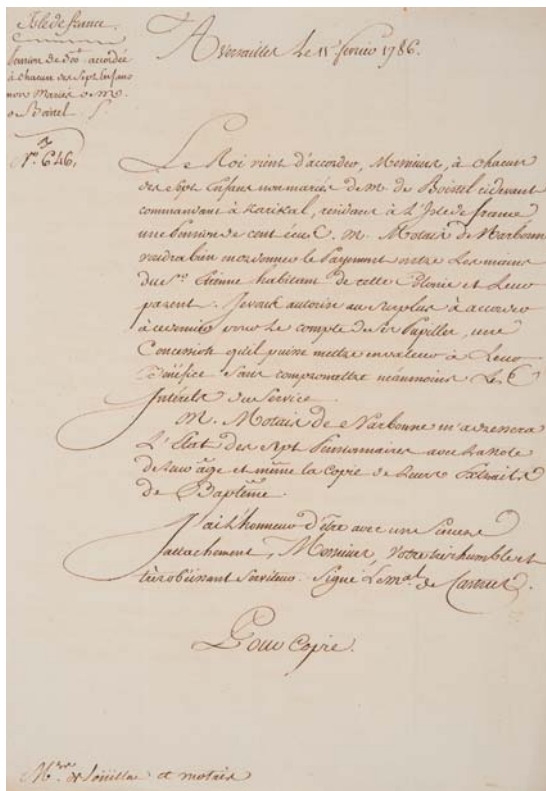 Isle de france.
Pension de 300 accordée
à chacun des sept Enfans
non Mariés de M.
de Boistel
N.° 646.
A Versailles le 11 fevrier 1786.
Le Roi vient d'accorder, Messieurs, à chacun
des sept Enfans non mariés de M. de Boistel cidevant
commandant à Karikal, residant à L'Isle de france
une Pension de cent écus. M. Motais de Narbonne
voudra bien en ordonner le Payement entre Les mains
du S.r Etienne habitant de cette Colonie et Leur
parent. Je vous autorise au surplus à accorder
à ce dernier pour Le compte de ses Pupilles, une
Concession qu'il puisse mettre en valeur à Leur
Bénéfice Sans compromettre néanmoins Les
Intérêts du Service.
M. Motais de Narbonne m'adressera
L'Etat des sept Pensionnaires avec la note
de leur âge et même la Copie de Leurs Extraits
de Baptême.
J'ai L'honneur d'être avec une Sincere
attachement, Messieurs, votre très humble et
très obéissant Serviteur. Signé Le m.al de Castries.
Pour Copie.
M.rs de Souillac et motais